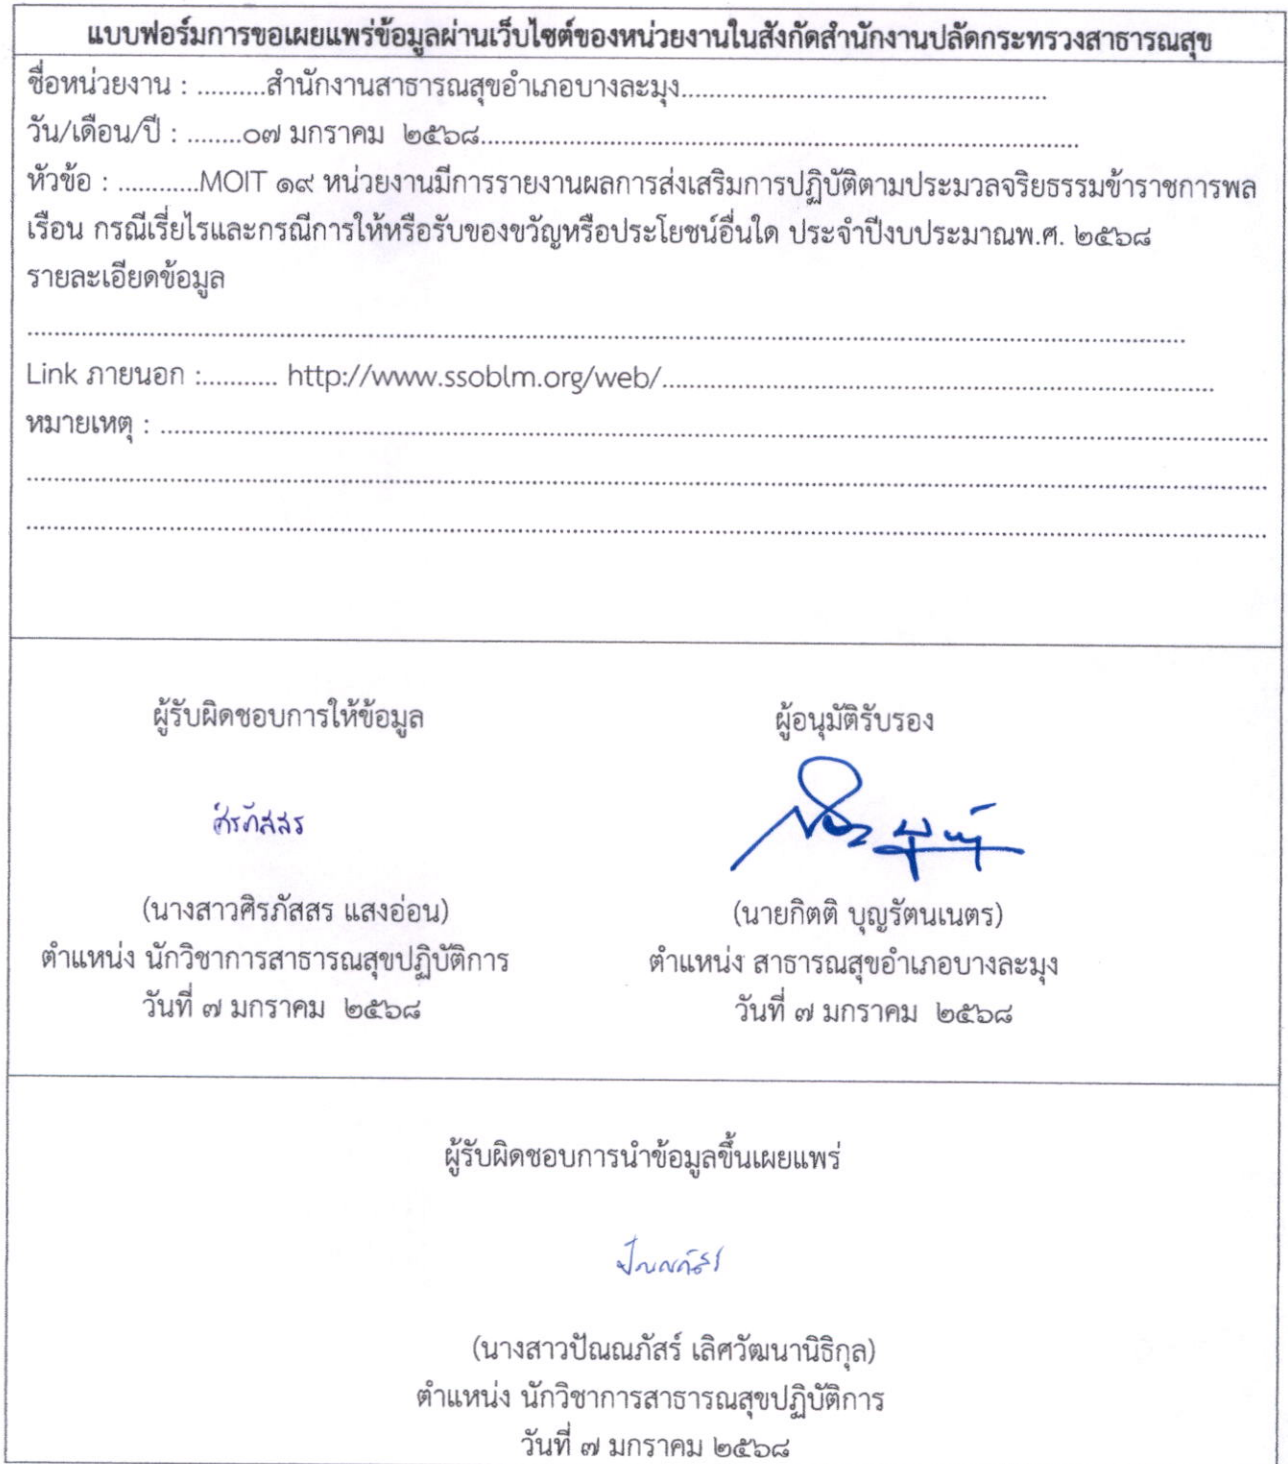 แบบฟอร์มการขอเผยแพร่ข้อมูลผ่านเว็บไซต์ของหน่วยงานในสังกัดสำนักงานปลัดกระทรวงสาธารณสุข
ชื่อหน่วยงาน : ..........สำนักงานสาธารณสุขอำเภอบางละมุง.....................................................
วัน/เดือน/ปี : ........๐๗ มกราคม ๒๕๖๘.......................................................................................
หัวข้อ : ............MOIT ๑๙ หน่วยงานมีการรายงานผลการส่งเสริมการปฏิบัติตามประมวลจริยธรรมข้าราชการพล
เรือน กรณีเรี่ยไรและกรณีการให้หรือรับของขวัญหรือประโยชน์อื่นใด ประจำปีงบประมาณพ.ศ. ๒๕๖๘
รายละเอียดข้อมูล
..............................................................................................................................................................................
Link ภายนอก :........... http://www.ssoblm.org/web/..................................................................................
หมายเหตุ : ....................................................................................................................................................................
..........................................................................................................................................................................................
..........................................................................................................................................................................................
ผู้รับผิดชอบการให้ข้อมูล
ศิรภัสสร
(นางสาวศิรภัสสร แสงอ่อน)
ตำแหน่ง นักวิชาการสาธารณสุขปฏิบัติการ
วันที่ ๗ มกราคม ๒๕๖๘
ผู้อนุมัติรับรอง
(นายกิตติ บุญรัตนเนตร)
ตำแหน่ง สาธารณสุขอำเภอบางละมุง
วันที่ ๗ มกราคม ๒๕๖๘
ผู้รับผิดชอบการนำข้อมูลขึ้นเผยแพร่
ปัณณภัสร์
(นางสาวปัณณภัสร์ เลิศวัฒนานิธิกุล)
ตำแหน่ง นักวิชาการสาธารณสุขปฏิบัติการ
วันที่ ๗ มกราคม ๒๕๖๘